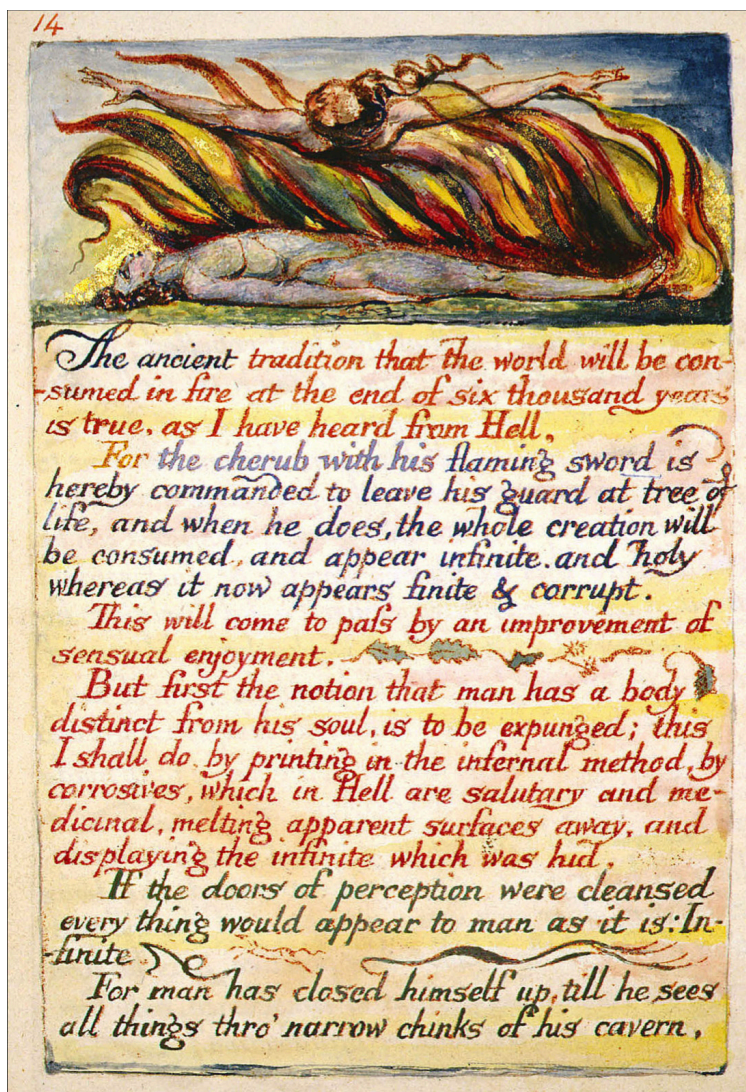 14
The ancient tradition that the world will be con-
-sumed in fire at the end of six thousand years
is true, as I have heard from Hell.
For the cherub with his flaming sword is
hereby commanded to leave his guard at tree of
life, and when he does, the whole creation will
be consumed, and appear infinite. and holy
whereas it now appears finite & corrupt.
This will come to paſs by an improvement of
sensual enjoyment.
But first the notion that man has a body
distinct from his soul, is to be expunged; this
I shall do, by printing in the infernal method, by
corrosives, which in Hell are salutary and me-
-dicinal, melting apparent surfaces away, and
displaying the infinite which was hid.
If the doors of perception were cleansed
every thing would appear to man as it is: In-
-finite
For man has closed himself up, till he sees
all things thro' narrow chinks of his cavern.